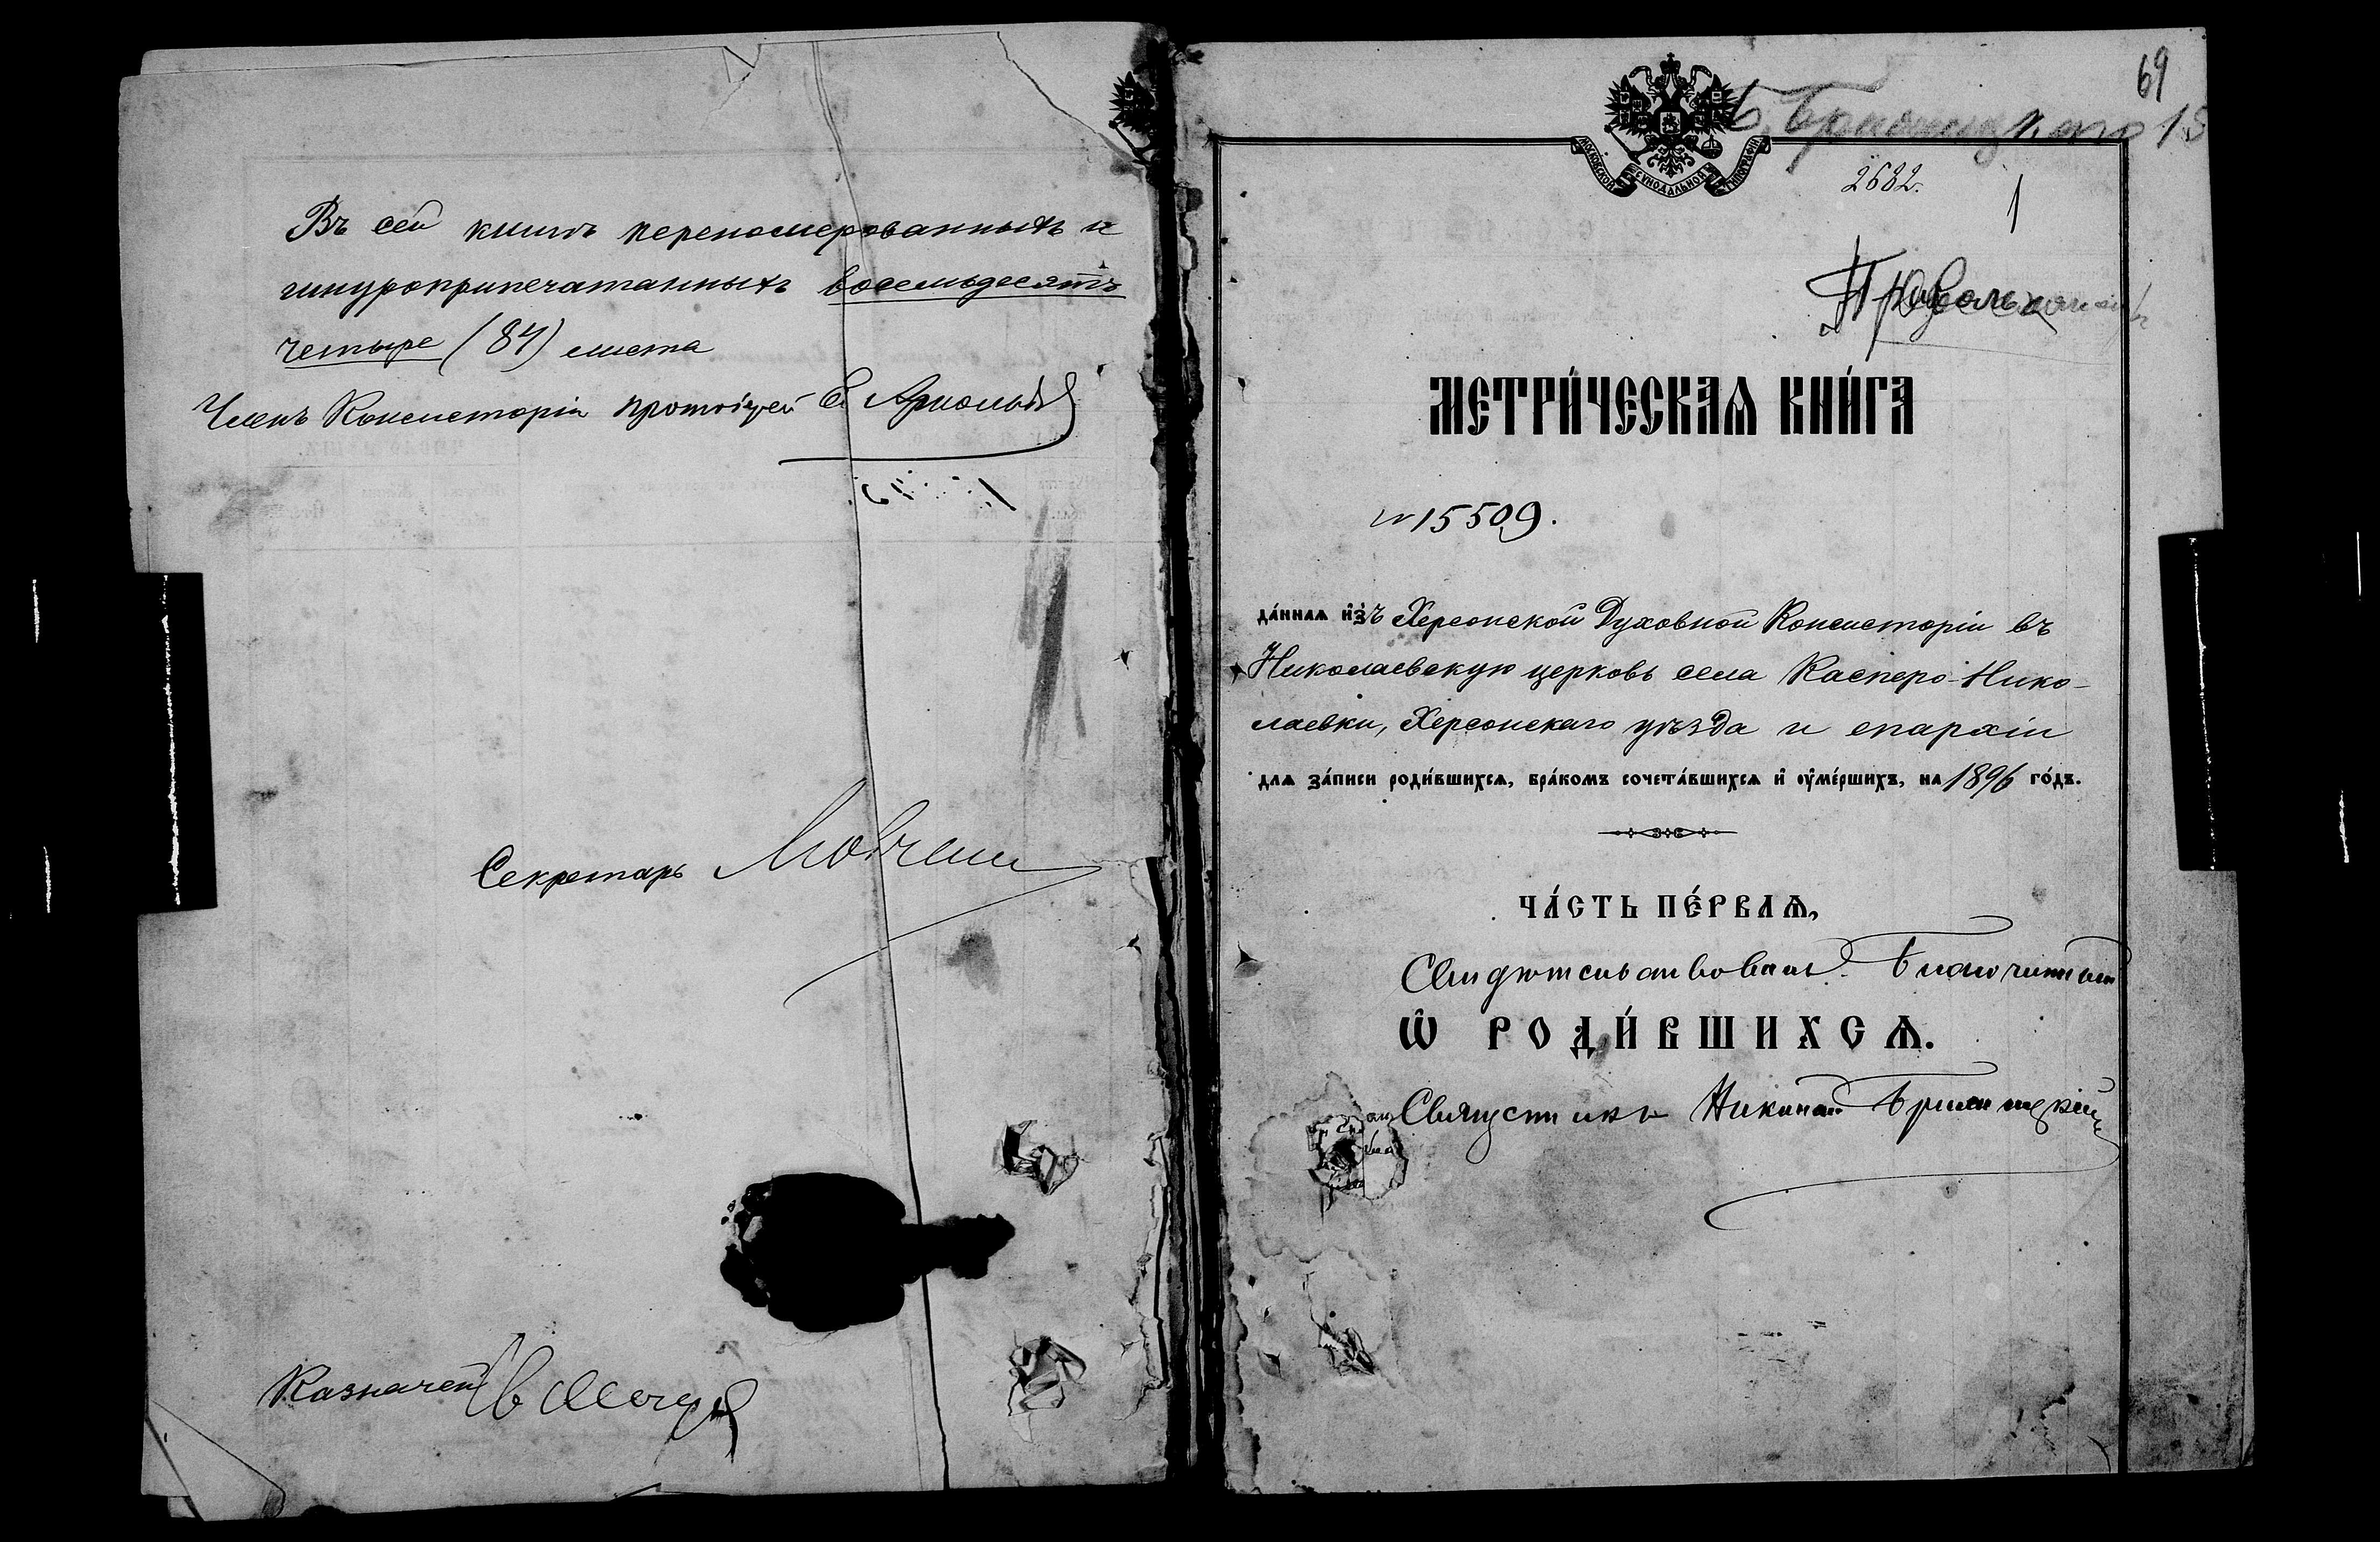 Въ сей книгѣ перепомерованныхъ и
шнуроприпечатанныхъ восемьдесятъ
четыре (84) листа
Членъ Консисторіи протоіерей
Секретарь
Казначей
69
2682.
1
МЕТРИ́ЧЕСКАѦ КНИ́ГА
№ 15509.
да́ннаѧ и҆зъ Херсонской Духовной Консисторіи въ
Николаевскую церковь села Касперо-Нико-
лаевки, Херсонскаго уѣзда и епархіи
для за́писи роди́вшихсѧ, бра́комъ сочета́вшихсѧ и҆ ᲂу҆ме́ршихъ, на 1896 го́дъ.
ЧА́СТЬ ПЕ́РВАѦ,
Свидѣтельствовалъ Благочинный
Ѡ҆ РОДИ́ВШИХСѦ.
Священникъ Николай
МОСКОВСКОЙ СѴНОДАЛЬНОЙ ТИПОГРАФІИ